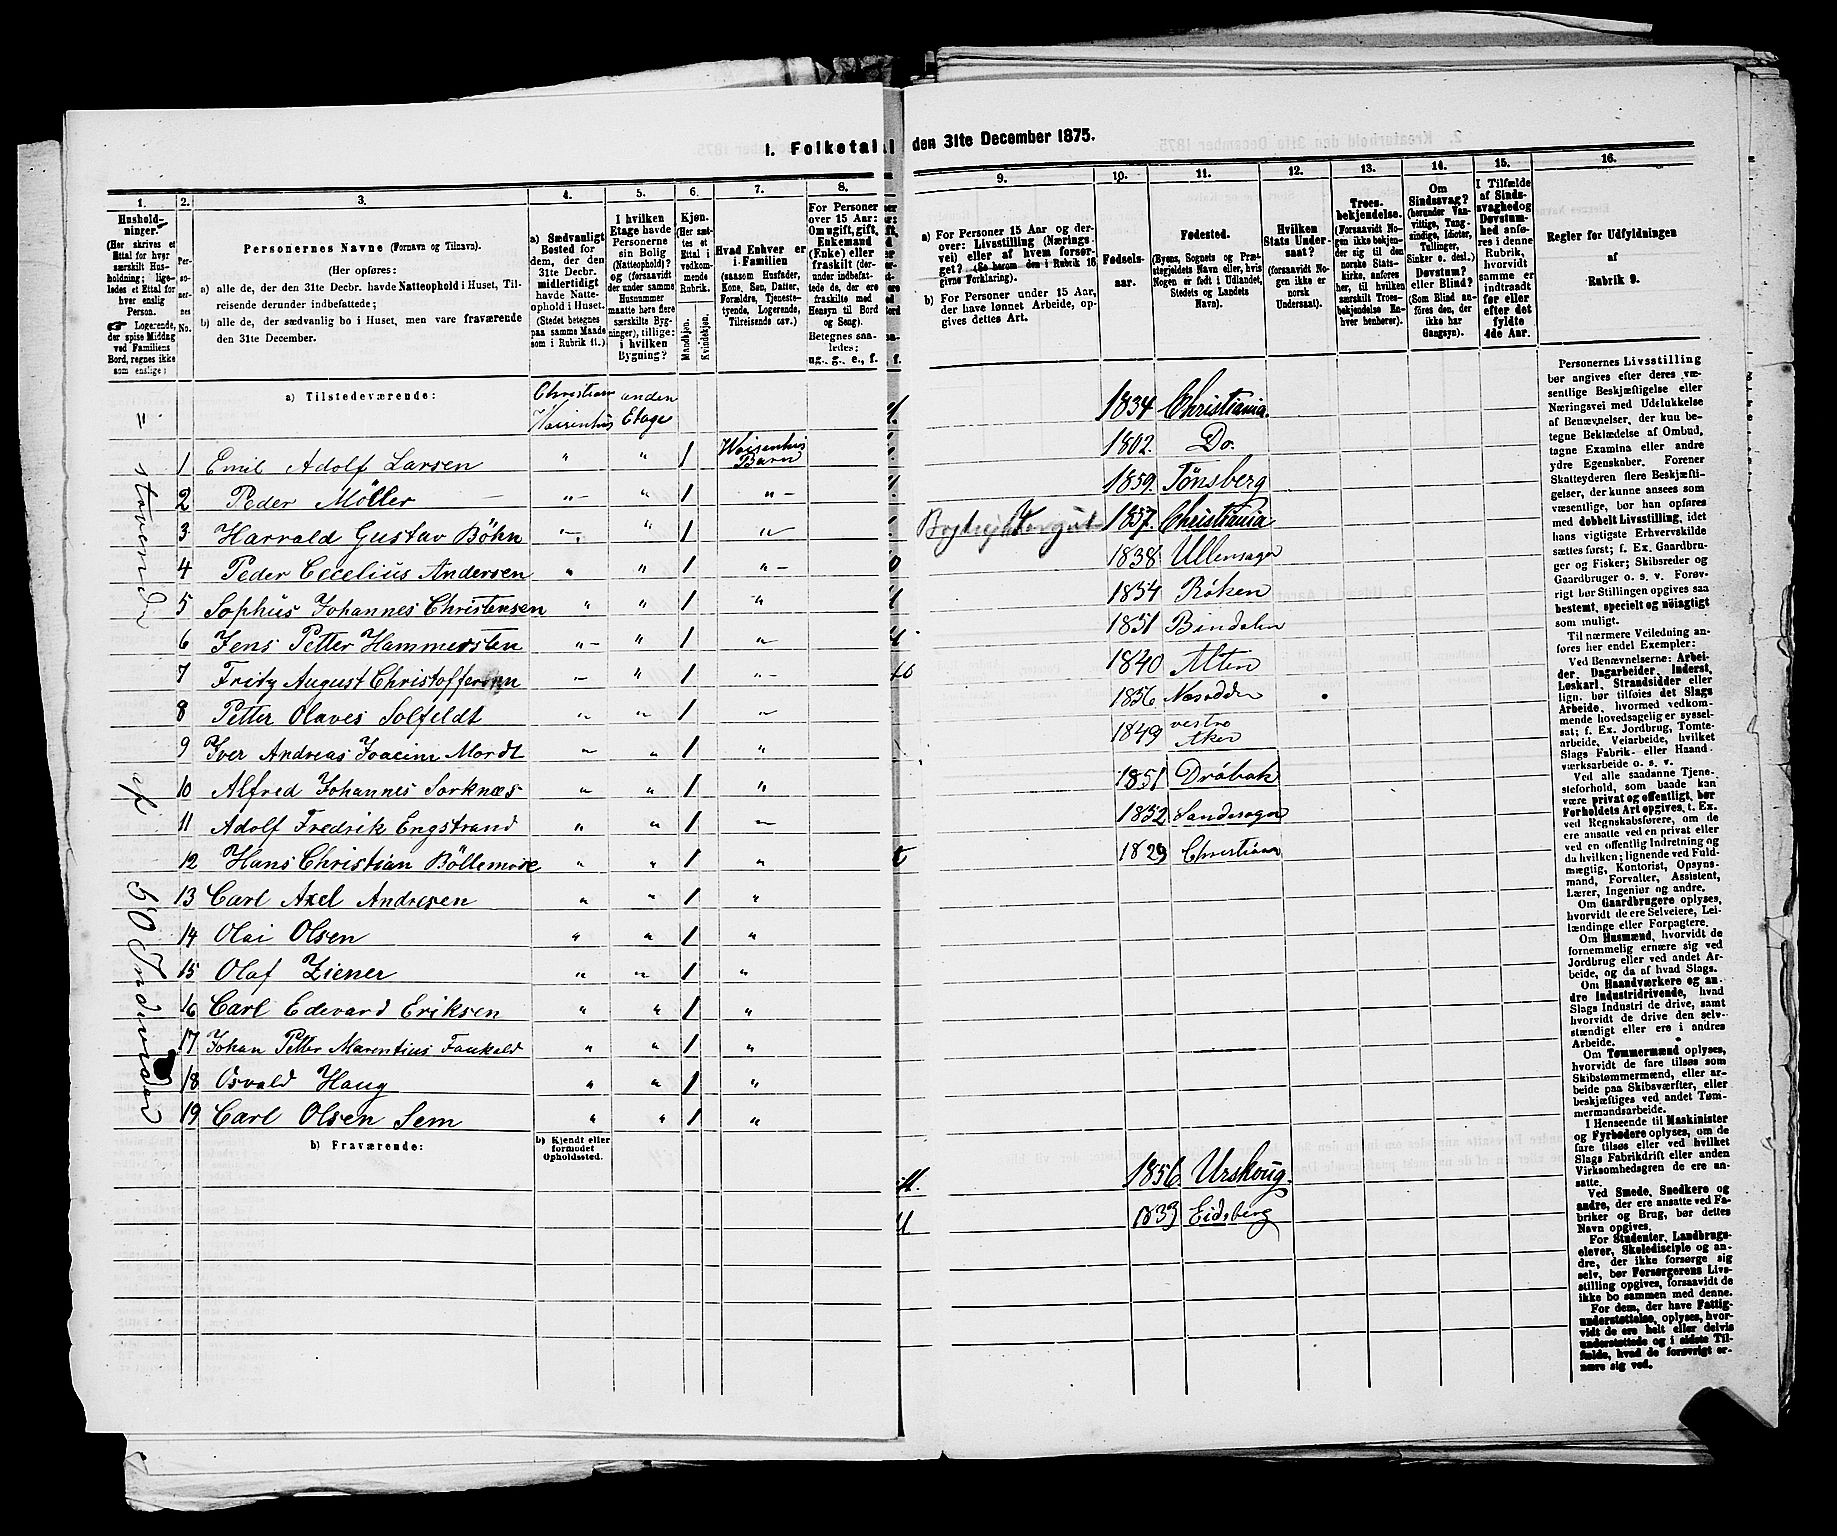 1. Folketal den 31te December 1875.
1. 2. 3. 4. 5. 6. 7. 8.
Hushold-
ninger.
(Her skrives et
Ettal for hver
særskilt Hus-
holdning; lige-
ledes et Ettal for
hver enslig
Person.
Logerende,
der spise Middag
ved Familiens
Bord, regnes ikke
som enslige;
Per-
so-
ner-
nes
No.
Personernes Navne (Fornavn og Tilnavn).
(Her opføres:
a) alle de, der den 31te Decbr. havde Natteophold i Huset, Til-
reisende derunder indbefattede;
b) alle de, der sædvanlig bo i Huset, men vare fraværende
den 31te December.
a) Sædvanligt
Bosted for
dem, der den
31te Decbr.
midlertidigt
havde Natte-
ophold i Huset.
(Stedet betegnes
paa samme Maade
som i Rubrik 11.)
I hvilken
Etage havde
Personerne
sin Bolig
(Natteophold)?
og (forsaavidt
der under samme
Husnummer
maatte høre flere
særskilte Byg-
ninger), tillige:
i hvilken
Bygning?
Kjøn.
(Her sæt-
tes et
Ettal i
vedkom-
mende
Rubrik.
Mandkjøn.
Kvindekjøn.
Hvad Enhver er
i Familien
(saasom Husfader,
Kone, Søn, Datter,
Forældre, Tjeneste-
tyende, Logerende,
Tilreisende osv.)
For Personer
over 15 Aar:
Om ugift, gift,
Enkemand
(Enke) eller
fraskilt (der-
under indbefat-
tede de, der ere
fraskilte med
Hensyn til Bord
og Seng).
Betegnes saa-
ledes:
ug., g., e., f.
a) Tilstedeværende:
Christian anden
Waisenhus Etage
1 Emil Adolf Larsen " " 1 Waisenhus Barn
2 Peder Möller " " 1 "
3 Harrald Gustav Böhn " " 1 "
4 Peder Cecelius Andersen " " 1 "
5 Sophus Johannes Christensen " " 1 "
6 Jens Petter Hammersten " " 1 "
7 Fritz August Christoffersen " " 1 "
8 Petter Olaves Solfeldt " " 1 "
9 Iver Andreas Joacim Mordt " " 1 "
10 Alfred Johannes Sorknæs " " 1 "
11 Adolf Fredrik Engstrand " " 1 "
12 Hans Christian Böllemose " " 1 "
13 Carl Axel Andresen " " 1 "
14 Olai Olsen " " 1 "
15 Olaf Ziener " " 1 "
16 Carl Edevard Eriksen " " 1 "
17 Johan Petter Marentius Foukald " " 1 "
18 Osvald Haug " " 1 "
19 Carl Olsen Sem " " 1 "
b) Fraværende:
b) Kjendt eller
formodet
Opholdssted.
af 50 Individer
9. 10. 11. 12. 13. 14. 15. 16.
a) For Personer 15 Aar og der-
over: Livsstilling (Nærings-
vei) eller af hvem forsør-
get? (Se herom den i Rubrik 16
givne Forklaring).
b) For Personer under 15 Aar,
der have lønnet Arbeide, op-
gives dettes Art.
Fødsels-
aar.
Fødested.
(Byens, Sognets og Præ-
stegjeldets Navn eller, hvis
Nogen er født i Udlandet,
Stedets og Landets
Navn).
Hvilken
Stats Under-
saat?
(forsaavidt No-
gen ikke er
norsk
Undersaat).
Troes-
bekjendelse.
(Forsaavidt No-
gen ikke bekjen-
der sig til den
norske Stats-
kirke, anføres
her, til hvilken
særskilt Troes-
bekjendelse En-
hver henhører).
Om
Sindssvag?
(herunder Van-
vittige, Tung-
sindige, Idioter,
Tullinger,
Sinker o. desl.)
Døvstum?
eller Blind?
(Som Blind an-
føres den, der
ikke har
Gangsyn).
I Tilfælde
af Sinds-
svaghed og
Døvstum-
hed anfø-
res i denne
Rubrik,
hvorvidt
samme er
indtraadt
før eller
efter det
fyldte
4de Aar.
Regler for Udfyldningen
af
Rubrik 9.
1834 Christiania.
1802. Do.
1859. Tönsberg
1857. Christiania
1838 Ullensager
1854 Röken
1851 Bindalen
1840 Alten
1856 Nesodden
1849 vestre
Aker
1851 Dröbak
1852 Sandesogn
1829 Christiania
1856. Urskoug.
1833 Eidsberg
Personernes Livsstilling
bør angives efter deres væ-
sentlige Beskjæftigelse eller
Næringsvei med Udelukkelse
af Benævnelser, der kun be-
tegne Beklædelse af Ombud,
tagne Examina eller andre
ydre Egenskaber. Forener
Skatteyderen flere Beskjæfti-
gelser, der kunne ansees som
væsentlige, bør han opføres
med dobbelt Livsstilling, idet
hans vigtigste Erhvervskilde
sættes først; f. Ex. Gaardbru-
ger og Fisker; Skibsreder og
Gaardbruger o. s. v. Forøv-
rigt bør Stillingen opgives saa
bestemt, specielt og nøiagtigt
som muligt.
Til nærmere Veiledning an-
føres her endel Exempler:
Ved Benævnelserne: Arbei-
der, Dagarbeider, Inderst,
Løskarl, Strandsidder eller
lign. bør tilføies det Slags
Arbeide, hvormed vedkom-
mende hovedsagelig er syssel-
sat; f. Ex. Jordbrug, Tomte-
arbeide, Veiarbeide, hvilket
Slags Fabrik- eller Haand
værksarbeide o. s. v.
Ved alle saadanne Tjene-
steforhold, som baade kan
være privat og offentligt, bør
Forholdets Art opgives, t. Ex.
ved Regnskabsførere, om de
ere ansatte ved en privat eller
en offentlig Indretning og
da hvilken; lignende ved Fuld-
mægtig, Kontorist, Opsyns-
mand, Forvalter, Assistent,
Lærer, Ingeniør og andre.
Om Gaardbrugere oplyses,
hvorvidt de ere Selveiere, Lei-
lændinge eller Forpagtere.
Om Husmænd, hvorvidt de
fornemmelig ernære sig ved
Jordbrug eller ved andet Ar-
beide, og da af hvad Slags.
Om Haandværkere og an-
dre Industridrivende, hvad
Slags Industri de drive, samt
hvorvidt de drive den selv-
stændigt eller ere i andres
Arbeide.
Om Tømmermænd oplyses,
hvorvidt de fare tilsøs som
Skibstømmermænd, eller ar-
beide paa Skibsværfter, eller
beskjæftiges ved andet Tøm-
mermandsarbeide.
I Henseende til Maskinister
og Fyrbødere oplyses, om de
fare tilsøs eller ved hvilket
Slags Fabrikdrift eller anden
Virksomhedsgren de ere an-
satte.
Ved Smede, Snedkere og
andre, der ere ansatte ved Fa-
briker og Brug, bør dettes
Navn opgives.
For Studenter, Landbrugs-
elever, Skoledisciple og an-
dre, der ikke forsørge sig
selv, bør Forsørgerens Livs-
stilling opgives, forsaavidt de
ikke bo sammen med denne.
For dem, der have Fattig-
understøttelse, oplyses, hvor-
vidt de ere helt eller delvis
understøttede og i sidste Til-
fælde, hvad de forøvrigt er-
nære sig ved.